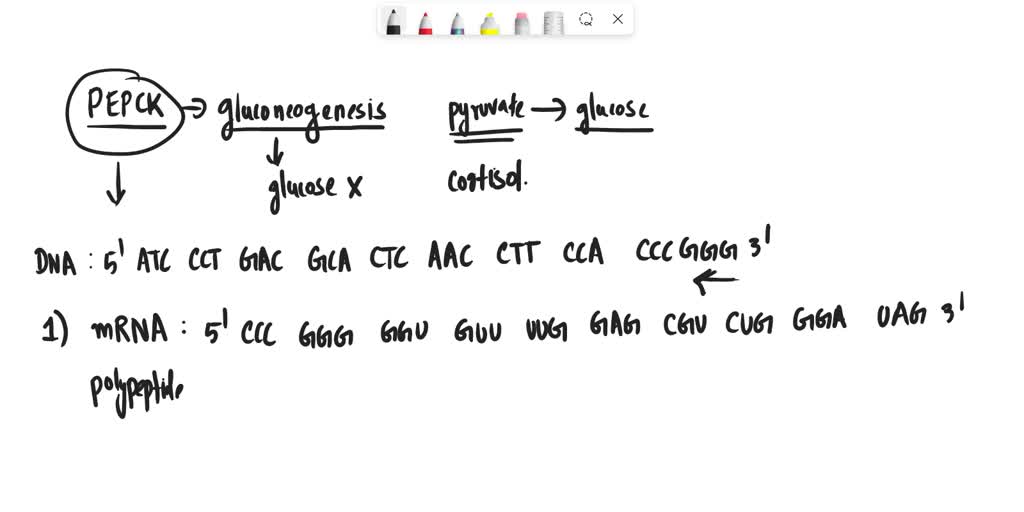 PEPCK → gluconeogenesis pyruvate → glucose
glucose X cortisol.
DNA : 5' ATC CCT GAC GCA CTC AAC CTT CCA CCC GGG 3'
1) mRNA : 5' CCC GGG GGU GUU UUG GAG CGU CUG GGA UAG 3'
polypeptide